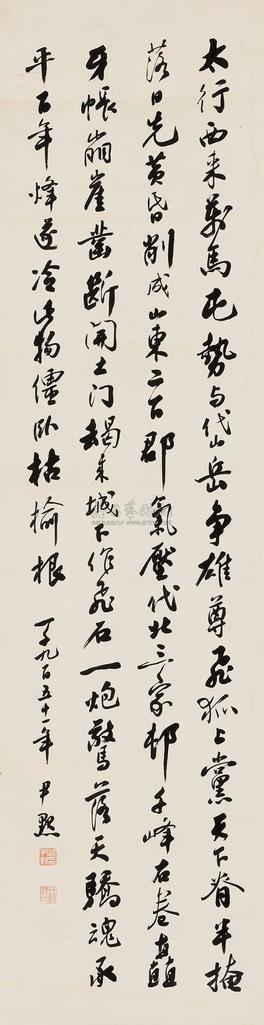 太行西来万馬屯勢与岱岳争雄尊飛狐上黨天下脊半掩
落日先黄昏削成山東二百郡氣壓代北三家邨千峰右卷矗
牙帳崩崖鑿断開土门朅来城下作飛石一炮驚落天驕魂承
平百年烽燧冷此物僵卧枯榆根
一千九百五十一年 尹默